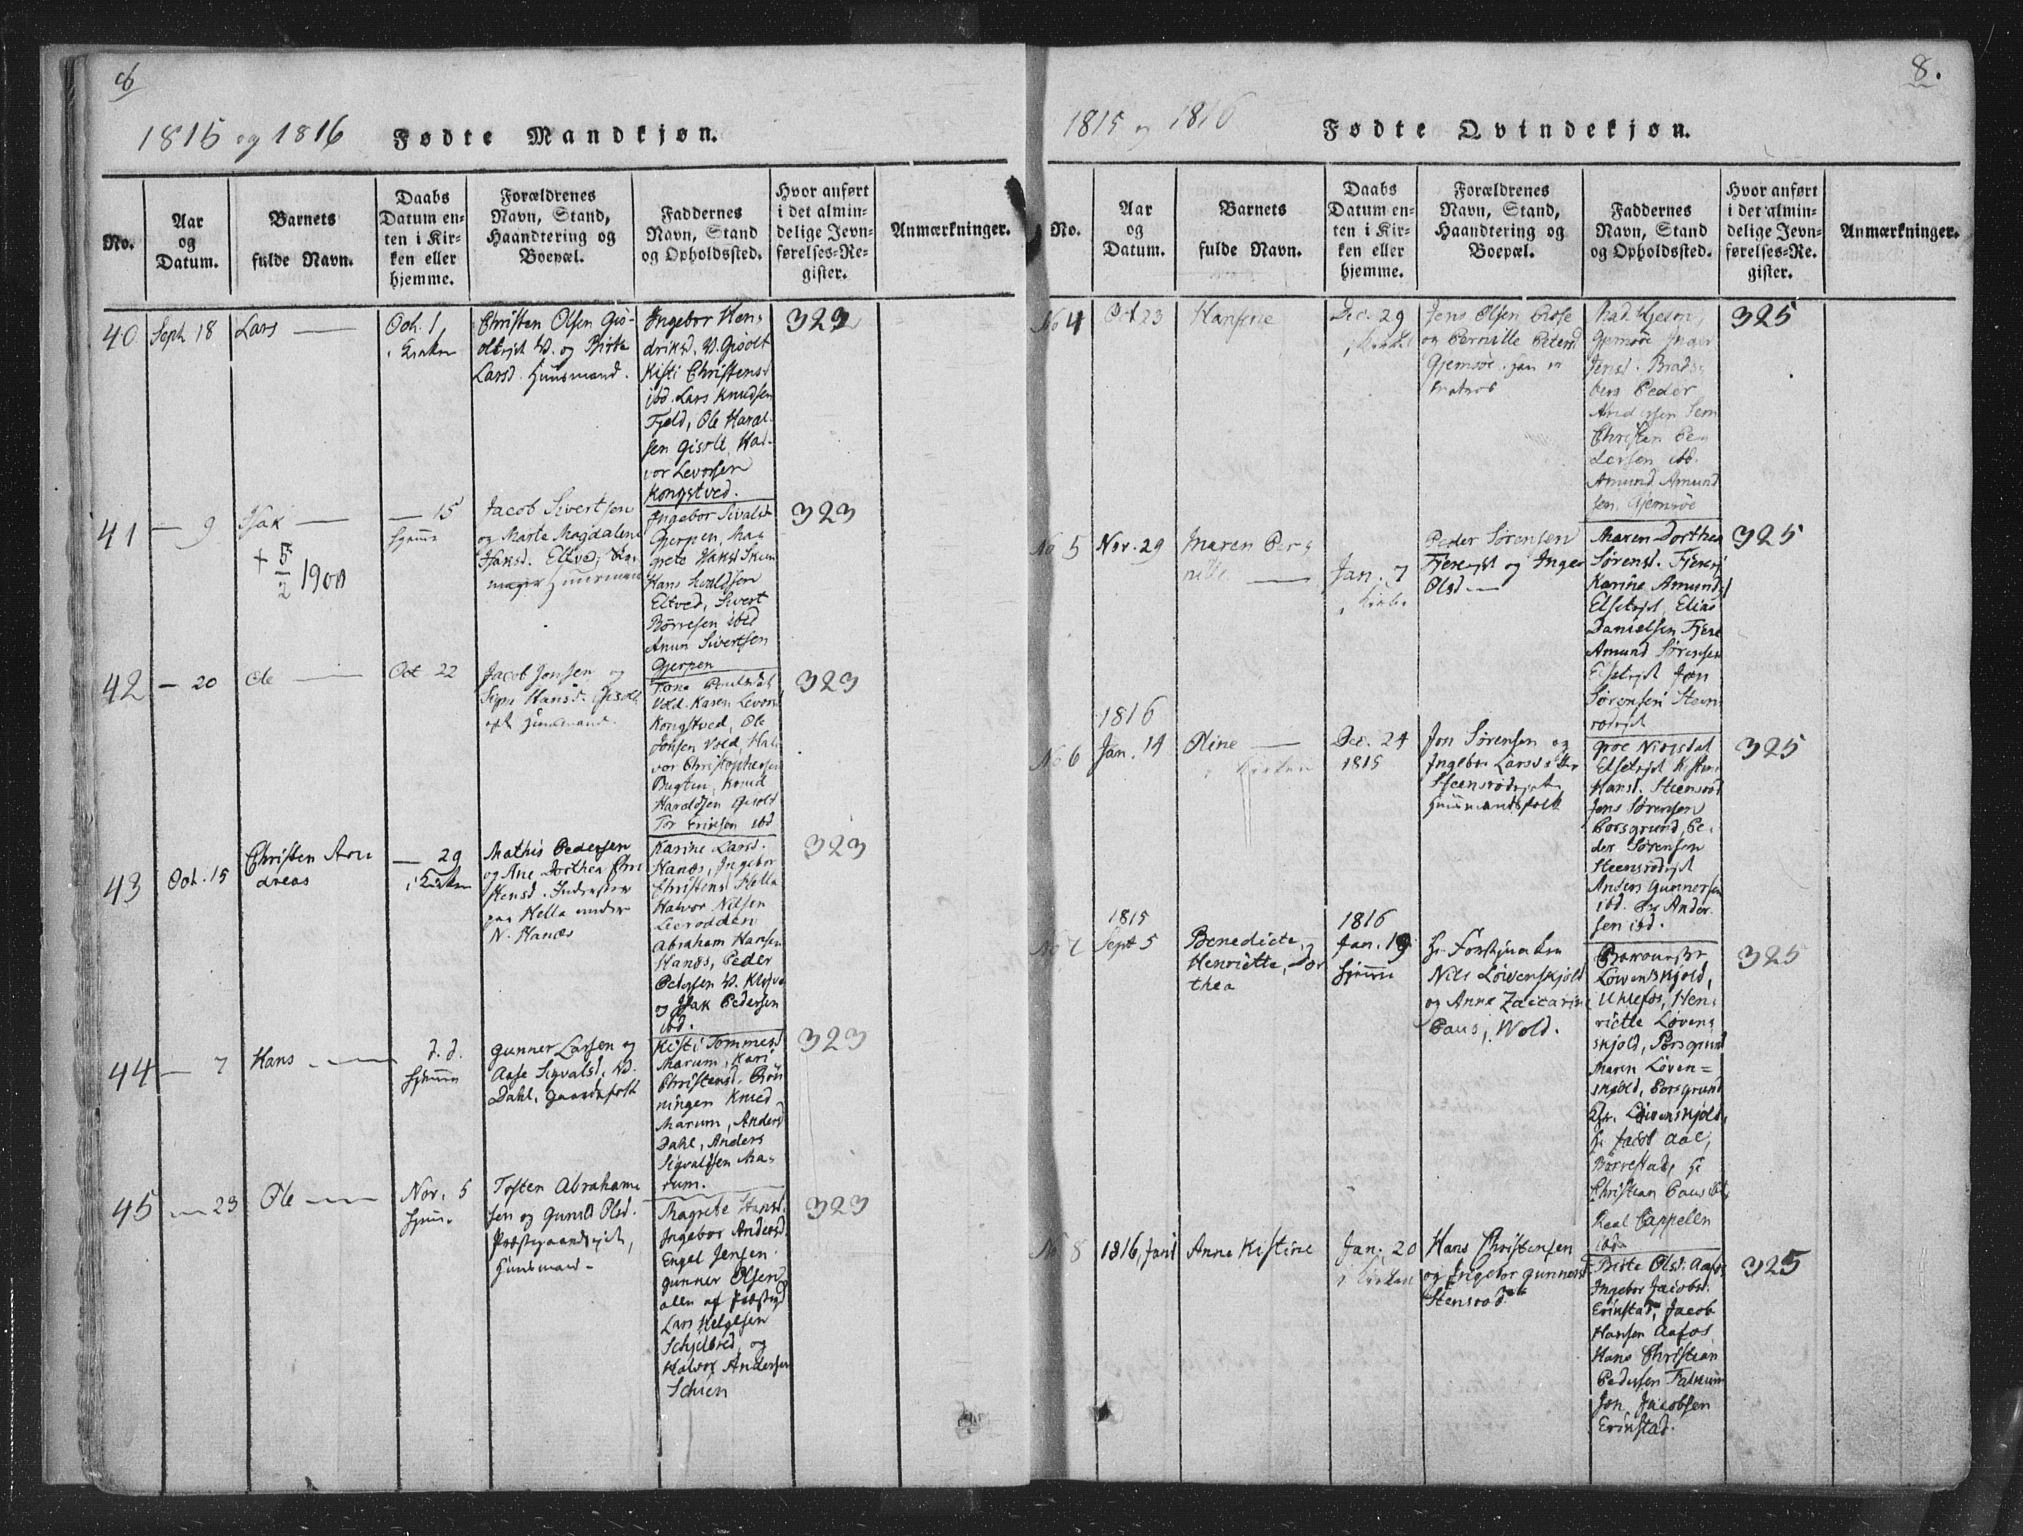 8
1815 og 1816 Fødte Mandkjøn.
No.
Aar
og
Datum.
Barnets
fulde Navn.
Daabs
Datum en-
ten i Kir-
ken eller
hjemme.
Forældrenes
Navn, Stand,
Haandtering og
Boepæl.
Faddernes
Navn, Stand
og Opholdssted.
Hvor anført
i det almin-
delige Jevn-
førelses-Re-
gister.
Anmærkninger.
40
Sept 18
Lars
Oct. 1,
i Kirken
Christen Olsen Gis-
og Birte
Larsd. Huusmand.
Ingebor Hen,
driksd. V. Gisolt
Kisti Christensd
ibd. Lars Knudsen
Fjeld, Ole Haral-
sen Gisolt, Hal-
vor Levorsen
Kongstved.
323
41
— 9
Isak
+ 5/2 1900
— 15
hjemme
Jacob Sivertsen
og Marte Magdalene
Isaksd. Eltved,
Huusmand
Ingebor Sivalsd
Gjerpen, Ma-
grete Isaksd
Hans Sivaldsen
Eltved, Sivert
Børresen ibid
Anun Sivertsen
Gjerpen
323
42
— 20
Ole
Oct 22
Jacob Jonsen og
Hansd. Gisolt
Huusmand.
Vold. Karen Levors
Kongstved, Ole
Jonsen Vold, Hal
vor Christophersen
Bugten, Knud
Haraldsen Gisolt
Tor Eriksen ibd
323
43
Oct. 15
Christen An
dreas
— 29
i Kirken
Mathis Pedersen
og Ane Dorthea Chri
stensd. Inderster
paa Hella under
N. Hanæs
Karine Larsd.
Hanæs, Ingebor
Christensd Hella
Halvor Nilsen
Lierodden
Abraham Hansen
Hanæs, Peder
Pedersen V.
og Isak Pedersen
ibd.
323
44
— 7
Hans
d. d.
hjemme
Gunner Larsen og
Aase Sigvalsd, N.
Dahl, Gaardfolk
Kisti Tommesd
Marum, Kari
Christensd. Bøn
ningen Knud
Marum, Anders
Dahl, Anders
Sigvaldsen Ma-
rum.
323
45
— 23
Ole
Nov. 5
hjem.
Tosten Abraham
sen og Gunild Olsd.
Præstegaardsejet,
Huusmand
Magrete Hansd
Ingebor Andersd.
Engel Jensen
Gunner Olsen
alle af Præsteg
Lars Helgesen
Schjelbred, og
Halvor Andersen
Schien
323
8.
1815 og 1816 Fødte Qvindekjøn.
No.
Aar
og
Datum.
Barnets
fulde Navn.
Daabs
Datum en-
ten i Kir-
ken eller
hjemme.
Forældrenes
Navn, Stand,
Haandtering og
Boepæl.
Faddernes
Navn, Stand
og Opholdssted.
Hvor anført
i det almin-
delige Jevn-
førelses-Re-
gister.
Anmærkninger.
No 4
Oct 23
Hansine
Dec. 29
i Kirken
Jens Olsen
og Pernille Petersd
Gjemsøe. han er
Matros
Gjemsøe Inger
Jensd. Brads,
berg Peder
Andersen
Christen Pe,
dersen ibd.
Amund Amund
sen, Gjemsøe
325
No 5
Nov. 29
Maren Per,
nille
Jan. 7
i Kirke
Peder Sørensen
Fjereejet og Inger
Olsd
Maren Dorthea
Sørensd. Fjereej
Karine Amundsd
Elsetejet, Elias
Danielsen Fjere
Amund Sørensen
Elsetejet Jon
Sørensen Steens
rødejet
325
1816
No 6
Jan. 14
Oline
i Kirken
Dec. 24
1815
Jon Sørensen og
Ingebor Larsdatter
Steensrødejet
Huusmandsfolk
Elsetejet Kisten
Hansd. Steensrød
Jens Sørensen
Porsgrund, Pe-
der Sørensen
Steensrødejet
Anders Gunnersen
ibd. Anders
sen ibd.
325
1815
No 7
Sept 5
Benedicte,
Henriette, Dor
thea
1816
Jan. 19
hjemme
Hr. Forstjunker
Nils Løvenskjold
og Anne Zacearine
Paus, Wold.
Baronesse
Løvenskjold,
Uhlefos, Hen,
riette Løven,
skjold, Porsgrund
Maren Løven=
skjold, Porsgrund
Hr. Løvenskjold,
Hr Jacob Aal,
Borrestad, Hr
Christian Paus ibd,
Real Cappelen
ibd.
325
No 8
1816, Jan 1
Anne Kistine
Jan. 20
i Kirken
Hans Christensen
og Ingebor Gunnersd
Stensrød
Birte Olsd. Aafos
Ingebor Jacobsd.
Erinstad, Jacob
Hansen Aafos
Hans Christian
Pedersen Falkum
Jon Jacobsen
Erinstad.
325